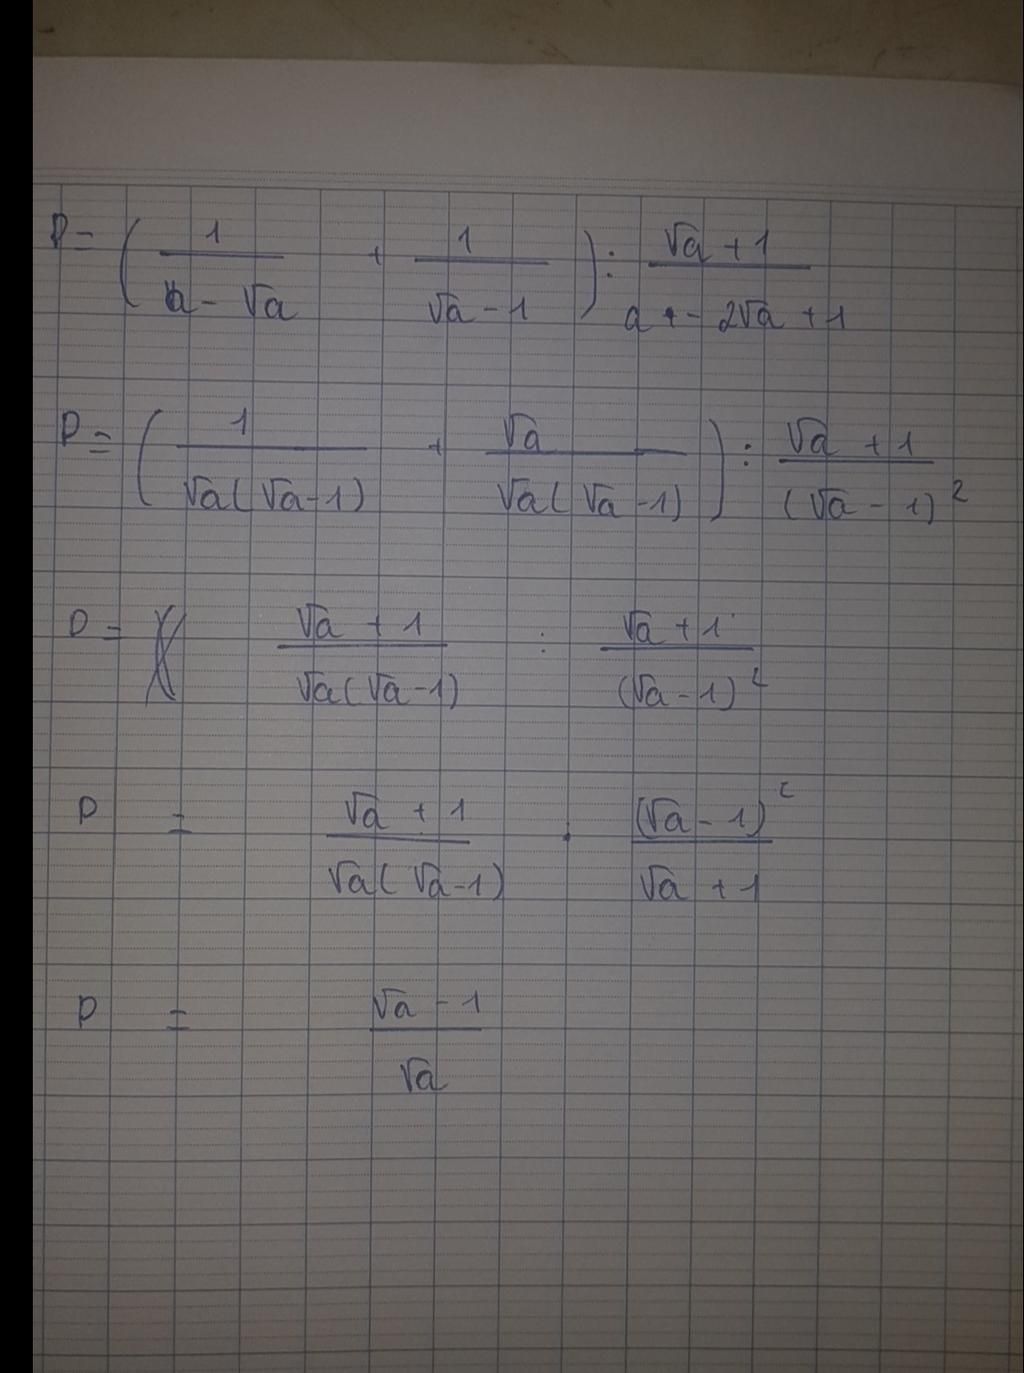 P = ( 1/(a - √a) + 1/(√a - 1) ) : (√a + 1)/(a + - 2√a + 1)
P = ( 1/(√a(√a - 1)) + √a/(√a(√a - 1)) ) : (√a + 1)/(√a - 1)²
P = (√a + 1)/(√a(√a - 1)) : (√a + 1)/(√a - 1)²
P = (√a + 1)/(√a(√a - 1)) . (√a - 1)²/(√a + 1)
P = (√a - 1)/√a